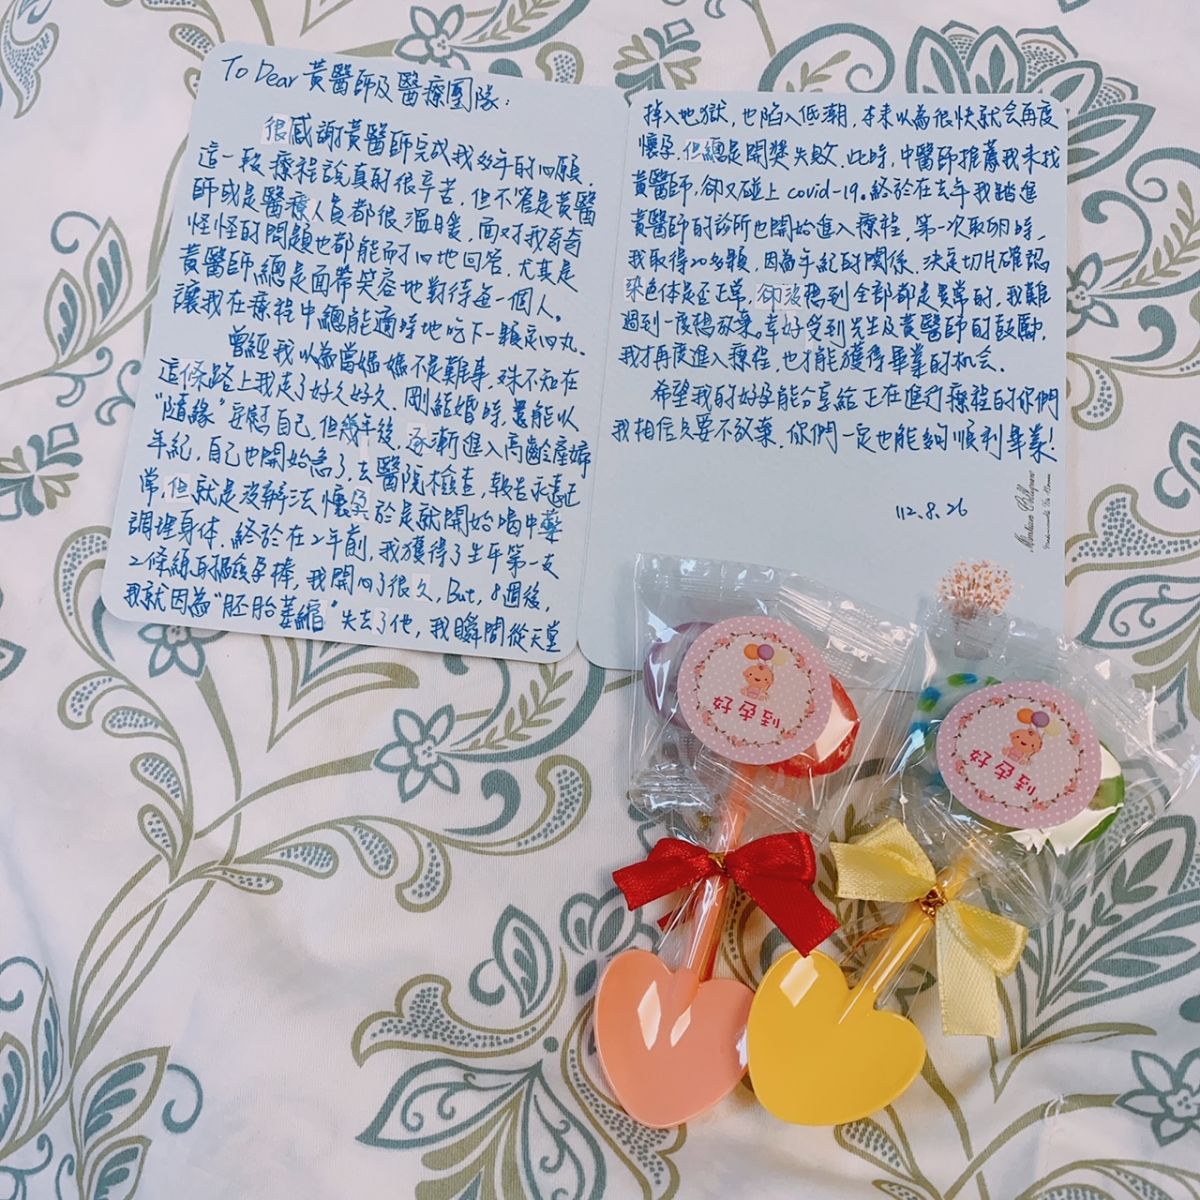 To Dear 黃醫師及醫療團隊：
很感謝黃醫師完成我多年的心願，
這一段療程說真的很辛苦，但不管是黃醫
師或是醫療人員都很溫暖，面對我奇奇
怪怪的問題也都能耐心地回答，尤其是
黃醫師，總是面帶笑容地對待每一個人。
讓我在療程中總能適時地吃下一顆定心丸。
曾經我以為當媽媽不是難事，殊不知在
這條路上我走了好久好久，剛結婚時，還能以
“隨緣”安慰自己，但幾年後，逐漸進入高齡產婦
年紀，自己也開始急了，去醫院檢查，報告永遠正
常，但就是沒辦法懷孕，於是就開始喝中藥
調理身体，終於在2年前，我獲得了生平第一支
2條線的驗孕棒，我開心了很久，But，8週後，
我就因為“胚胎萎縮”失去了他，我瞬間從天堂
掉入地獄，也陷入低潮，本來以為很快就会再度
懷孕，但總是開獎失敗，此時，中醫師推薦我來找
黃醫師，卻又碰上covid-19。終於在去年我踏進
黃醫師的診所也開始進入療程，第一次取卵時，
我取得20多顆，因為年紀的關係，決定切片確認
染色体是否正常，卻沒想到全部都是異常的，我難
過到一度想放棄。幸好受到先生及黃醫師的鼓勵，
我才再度進入療程，也才能獲得畢業的机会。
希望我的好孕能分享給正在進行療程的你們
我相信只要不放棄，你們一定也能夠順利畢業！
112.8.26
好孕到
好孕到